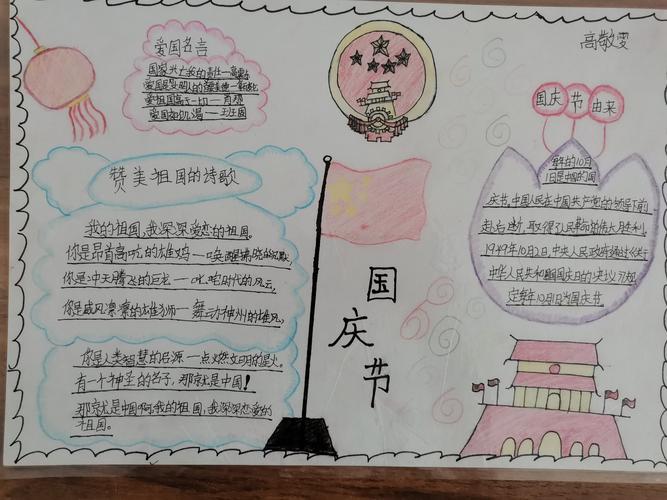 爱国名言
国家兴亡我的责任一高震东
爱祖国高于一切一肖邦
赞美祖国的诗歌
我的祖国,我深深爱恋的祖国。
你是昂首高吭的雄鸡一唤醒拂晓的沉默,
你是冲天腾飞的巨龙一叱咤时代的风云,
你是威风凛凛的雄狮一舞动神州的雄风,
你是人类智慧的启源一点燃文明的星火。
有一个神圣的名子,那就是中国!
那就是中国啊,我的祖国,我深深恋爱的
祖国。
国庆节
高敬雯
国庆节由来
每年的10月
1日是中国的国
庆节,中国人民在中国共产党的领导下前
赴后继,取得了人民革命的伟大胜利
1949年10月2日,中央人民政府通过《关于
中华人民共和国国庆日的决议》规
定每年10月1日为国庆节